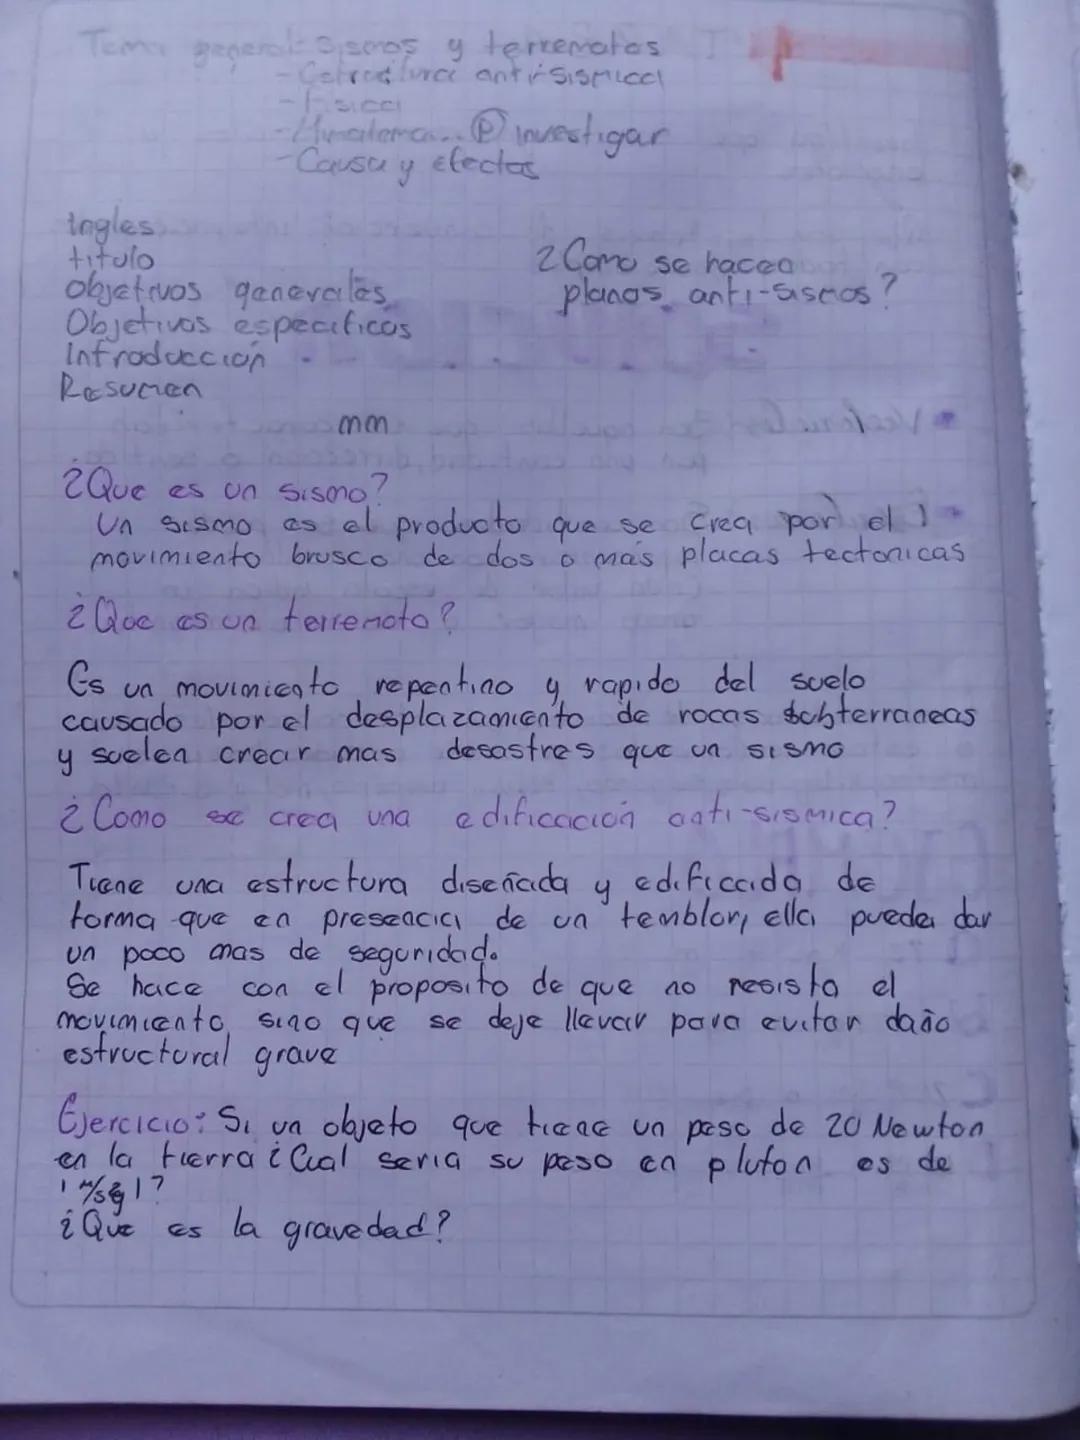 Tema general: Sismos y terremotos
- Estructura antisismica
- Fisica
- ... (P) investigar
- Causa y efectos
Ingles
titulo
objetivos generales
Objetivos especificos
Introducción
Resumen
¿Como se hacen
planos anti-sismos?
mm
¿Que es un sismo?
Un sismo es el producto que se crea por el
movimiento brusco de dos o mas placas tectonicas
¿Que es un terremoto?
Es un movimiento repentino y rapido del suelo
causado por el desplazamiento de rocas subterraneas
y suelen crear mas desastres que un sismo
¿Como se crea una edificación anti-sismica?
Tiene una estructura diseñada y edificada de
forma que en presencia de un temblor, ella pueda dar
un poco mas de seguridad.
Se hace con el proposito de que no resista el
movimiento, sino que se deje llevar para evitar daño
estructural grave
Ejercicio: Si un objeto que tiene un peso de 20 Newton
en la tierra ¿Cual seria su peso en pluton es de
?
¿Que es la gravedad?